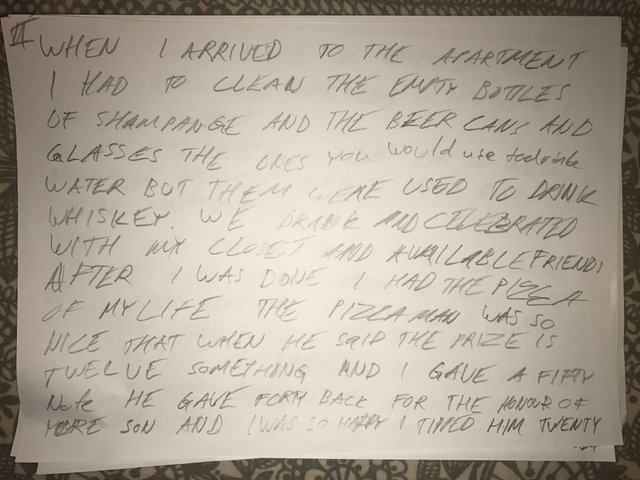 II
WHEN I ARRIVED TO THE APARTMENT
I HAD TO CLEAN THE EMPTY BOTTLES
OF SHAMPANGE AND THE BEER CANS AND
GLASSES THE ONES YOU would use to drink
WATER BUT THEM WERE USED TO DRINK
WHISKEY. WE DRANK AND CELEBRATED
WITH MY CLOSEST AND AVAILABLE FRIENDS
AFTER I WAS DONE I HAD THE PIZZA
OF MY LIFE THE PIZZA MAN WAS SO
NICE THAT WHEN HE SAID THE PRIZE IS
TWELVE SOMETHING AND I GAVE A FIFTY
Note HE GAVE FORTY BACK FOR THE HONOUR OF
YOURE SON AND I WAS SO HAPPY I TIPPED HIM TWENTY